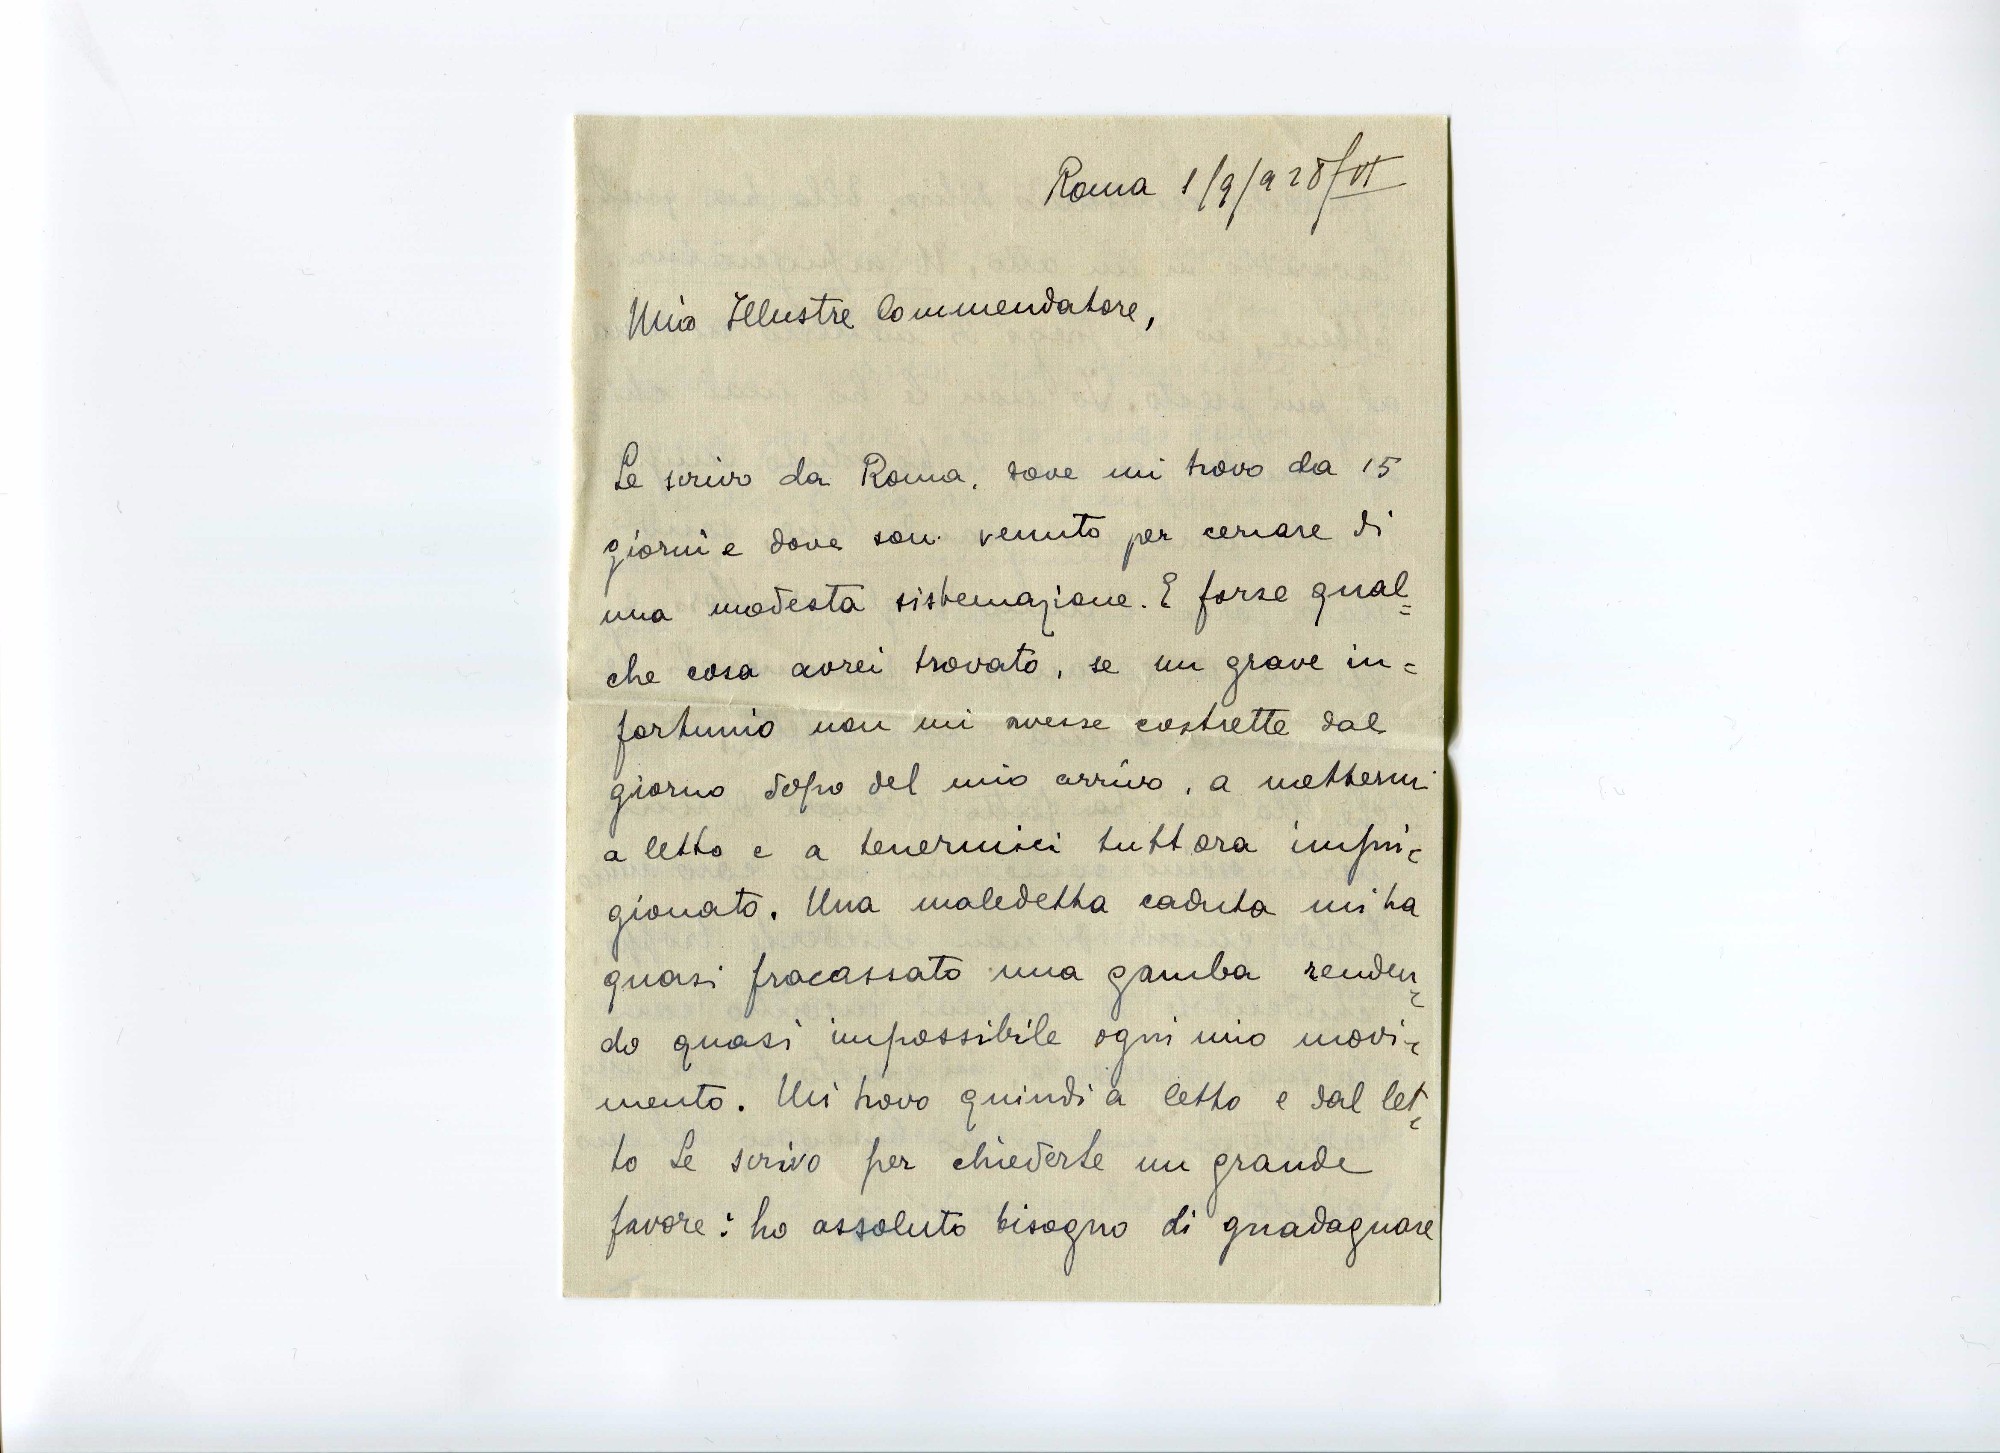 Roma 1/9/928/VI
Mio Illustre Commendatore,
Le scrivo da Roma, dove mi trovo da 15
giorni e dove son venuto per cercare di
una modesta sistemazione. E forse qual=
che cosa avrei trovato, se un grave in=
fortunio non mi avesse costrette dal
giorno dopo del mio arrivo, a mettermi
a letto e a tenermici tuttora impri=
gionato. Una maledetta caduta mi ha
quasi fracassato una gamba renden=
do quasi impossibile ogni mio movi=
mento. Mi trovo quindi a letto e dal let=
to Le scrivo per chiederLe un grande
favore: ho assoluto bisogno di guadagnare